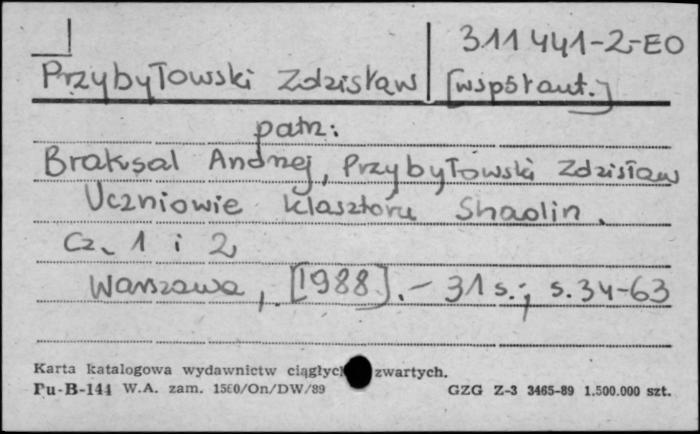 311 441-2-EO
Przybyłowski Zdzisław [współaut.]
patrz:
Braksal Andrzej, Przybyłowski Zdzisław
Uczniowie klasztoru Shaolin.
Cz. 1 i 2
Warszawa, [1988]. - 31 s.; s. 34-63
Karta katalogowa wydawnictw ciągłych zwartych.
Pu-B-144 W.A. zam. 1560/On/DW/89 GZG Z-3 3465-89 1.500.000 szt.